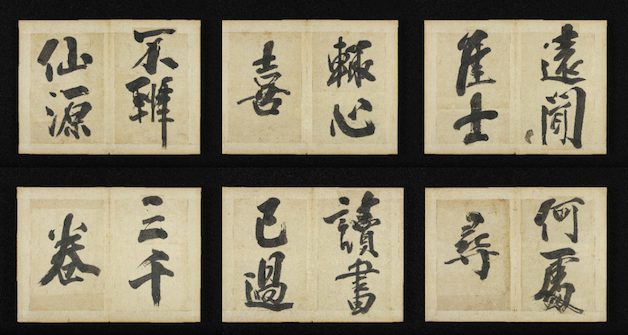 遠聞
佳士
輒心
喜
不辨
仙源
何處
尋
讀書
已過
三千
卷